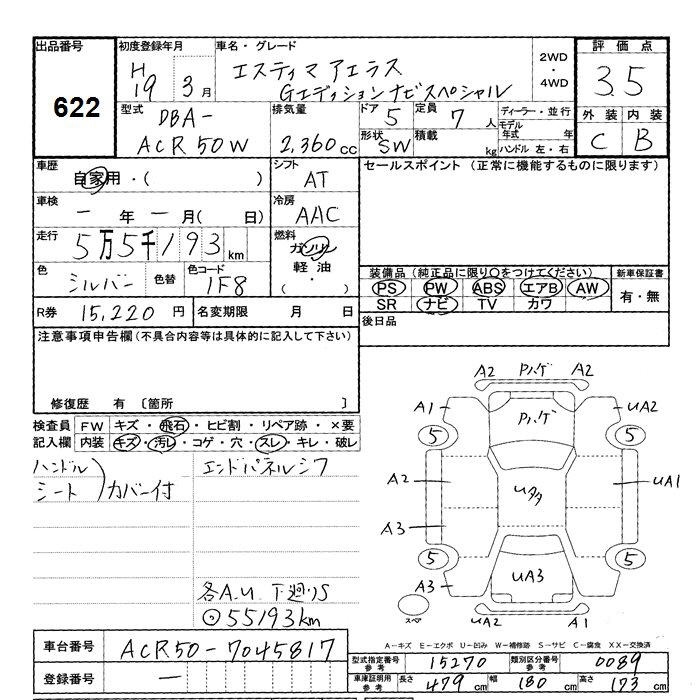 出品番号
622
初度登録年月
H19 3月
車名・グレード
エスティマ アエラス
Gエディションナビスペシャル
2WD
・
4WD
評価点
3.5
外装 内装
C B
型式
DBA-
ACR50W
排気量
2,360cc
ドア
5
形状
SW
定員
7人
積載
kg
ディーラー・並行
モデル年式 年
ハンドル 左・右
車歴
自家用・( )
シフト
AT
セールスポイント (正常に機能するものに限ります)
車検
一年一月( 日)
冷房
AAC
走行
5万5千193km
燃料
ガソリン
軽油
( ・ )
色
シルバー
色替
色コード
1F8
装備品(純正品に限り○をつけてください)
PS PW ABS エアB AW
SR ナビ TV カワ
新車保証書
有・無
R券 15,220円
名変期限 月 日
後日品
注意事項申告欄(不具合内容等は具体的に記入して下さい)
修復歴 有〔箇所 〕
検査員記入欄
FW キズ・飛石・ヒビ割・リペア跡・×要
内装 キズ・汚レ・コゲ・穴・スレ・キレ・破レ
ハンドル
シート
カバー付
エンドパネルシワ
各A.U 下廻りS
55193km
A2 Pハゲ A2
A1 Pハゲ UA2
5 5
A2 Uタタ UA1
A3
5 5
A3 UA3
スペア UA2 A1
A-キズ E-エクボ U-凹み W-補修跡 S-サビ C-腐食 XX-交換済
車台番号 ACR50-7045817
登録番号 一
型式指定番号 参考 15270 類別区分番号 参考 0089
車庫証明用 参考 長さ 479cm 幅 180cm 高さ 173cm